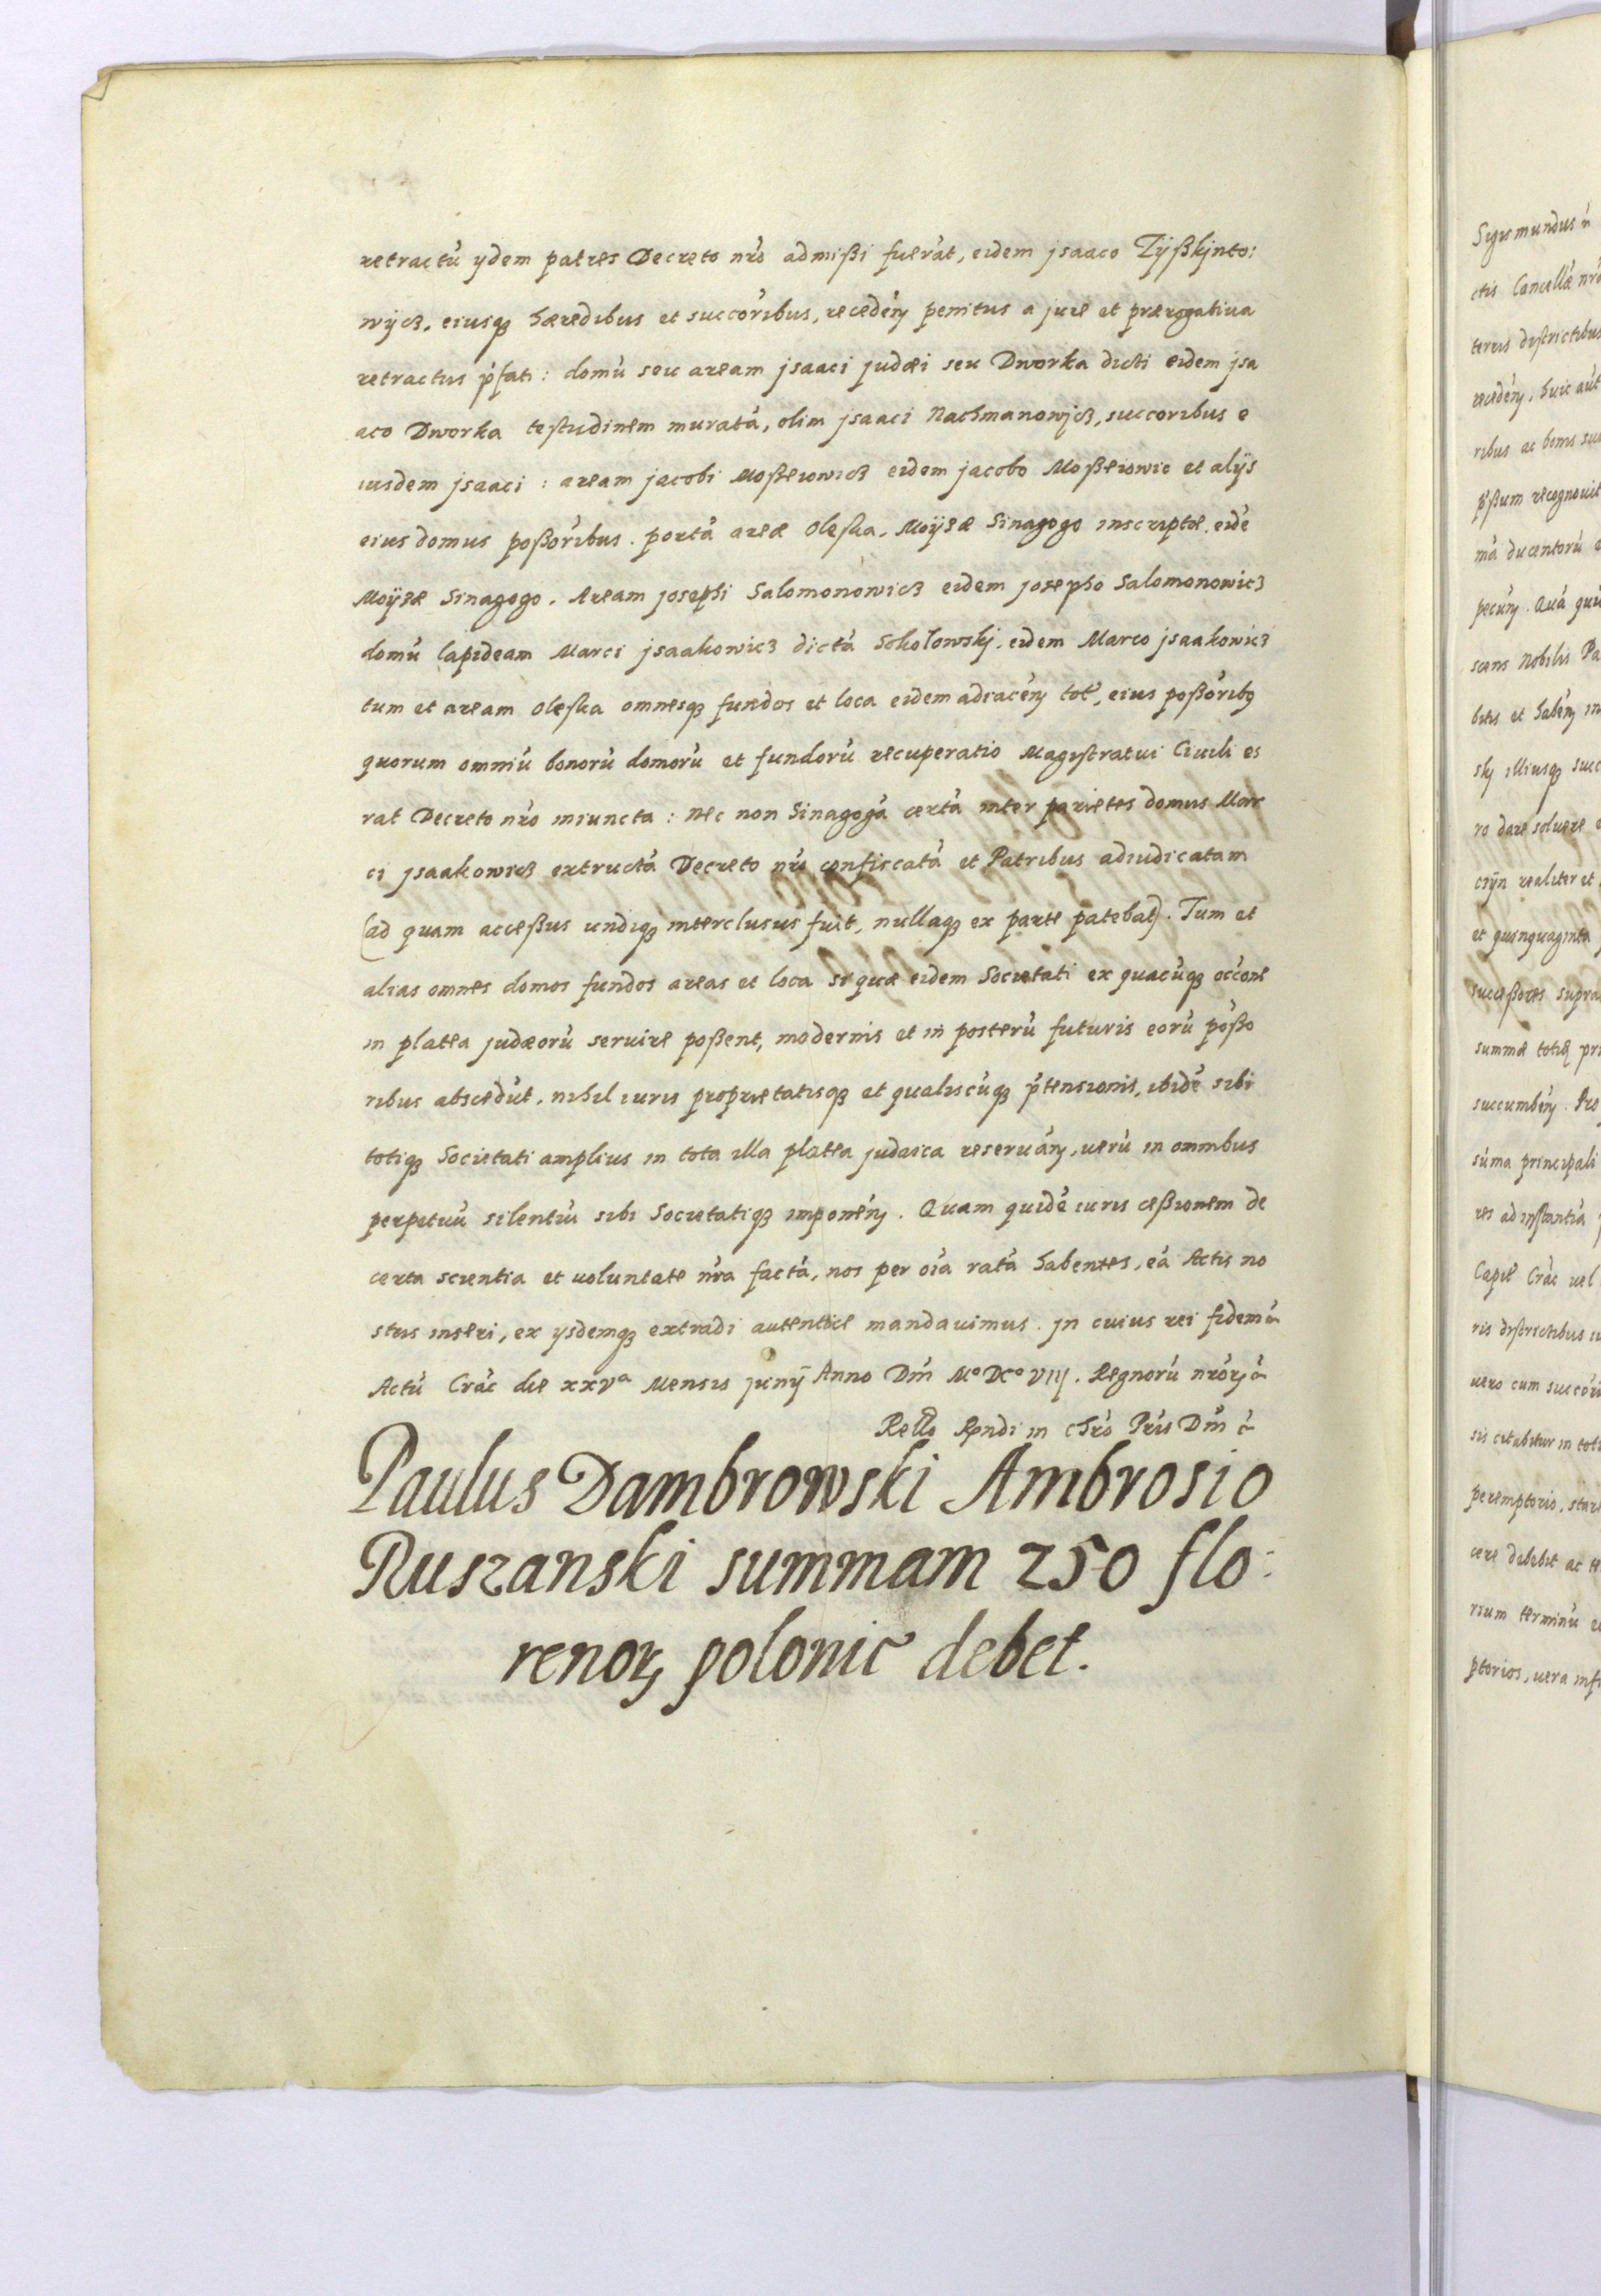 retractú ydem patres Decreto nr̃o admißi fuerát, eidem jsaaco Zÿßkjnto:
wÿcz, eiusq₃ hæredibus et succoribus, recedeń penitus a jure et prærogatiua
retractus p̃fati: domú seu aream jsaaci judæi seu Dworka dicti eidem jsa
aco Dworka testudinem muratá, olim jsaaci Nachmanowjcz, succoribus e
iusdem jsaaci: aream jacobi Moßeiowicz eidem jacobo Moßeiowic et alÿs
eius domus poßoribus. portá areæ Oleska, Moÿsæ Sinagogo inscriptæ, eidé
Moÿsæ Sinagogo. Aream josephi Salomonowicz eidem josepho Salomonowicz
domú lapideam Marci jsaakowicz dictá Sokolowskj, eidem Marco jsaakowicz
tum et aream Oleska omnesq₃ fundos et loca eidem adiaceń tot̃, eius poßorib₉
quorum omniú bonorú domorú et fundorú recuperatio Magistratui Ciuili es
rat Decreto nr̃o iniuncta: Nec non Sinagogá certá inter parietes domus Mar
ci jsaakowicz extructá Decreto nr̃o confiscatá et Patribus adiudicatam
(ad quam acceßus undiq₃ interclusus fuit, nullaq₃ ex parte patebat). Tum et
alias omnes domos fundos areas et loca si quæ eidem Societati ex quacúq₃ occóne
in platea judæorú seruire poßent, modernis et in posterú futuris eorú poßo
ribus abscedút, nihil iuris proprietatisq₃ et qualiscúq₃ p̃tensionis, ibidé sibi
totiq₃ Societati amplius in tota illa platea judaica reseruáń, uerú in omnibus
perpetuú silentiú sibi Societatiq₃ imponéń. Quam quidé iuris ceßionem de
certa scientia et uoluntate nr̃a factá, nos per oı̃a ratá habentes, eá Actis no
stris inseri, ex ysdemq₃ extradi autentice mandauimus. jn cuius rei fidem &
Actú Crác die xxvᵃ Mensis junÿ Anno Dm̃ Mº DCº VIIJ. Regnorú nr̃orꝫ &
Rello Rndi in Chr̃o Pr̃is Dm̃ &
Paulus Dambrowski Ambrosio
Ruszanski summam 250 flo:
renorꝫ polonic̃ debet.
Sigismundus &
ctis Cancellæ nr̃
terris districtibus
recedéń, huic aút
ribus ac bonis suc
p̃ßum recognouit
má ducentorú e
pecuń. Quá qui
scens Nobilis Pa
bitis et habéń in
skj illiusq₃ succ
ro dare soluere e
cÿn realiter et
et quinquaginta
succeßores supra
summæ totiq₃ pri
succumbéń. Pro
súma principali
res ad instantiá
Capiẽ Crác uel
ris districtibus
uero cum succori
sis citabitur in toti
peremptorio, stare
cere debebit ac te
rium terminú
ptorios, uera infi